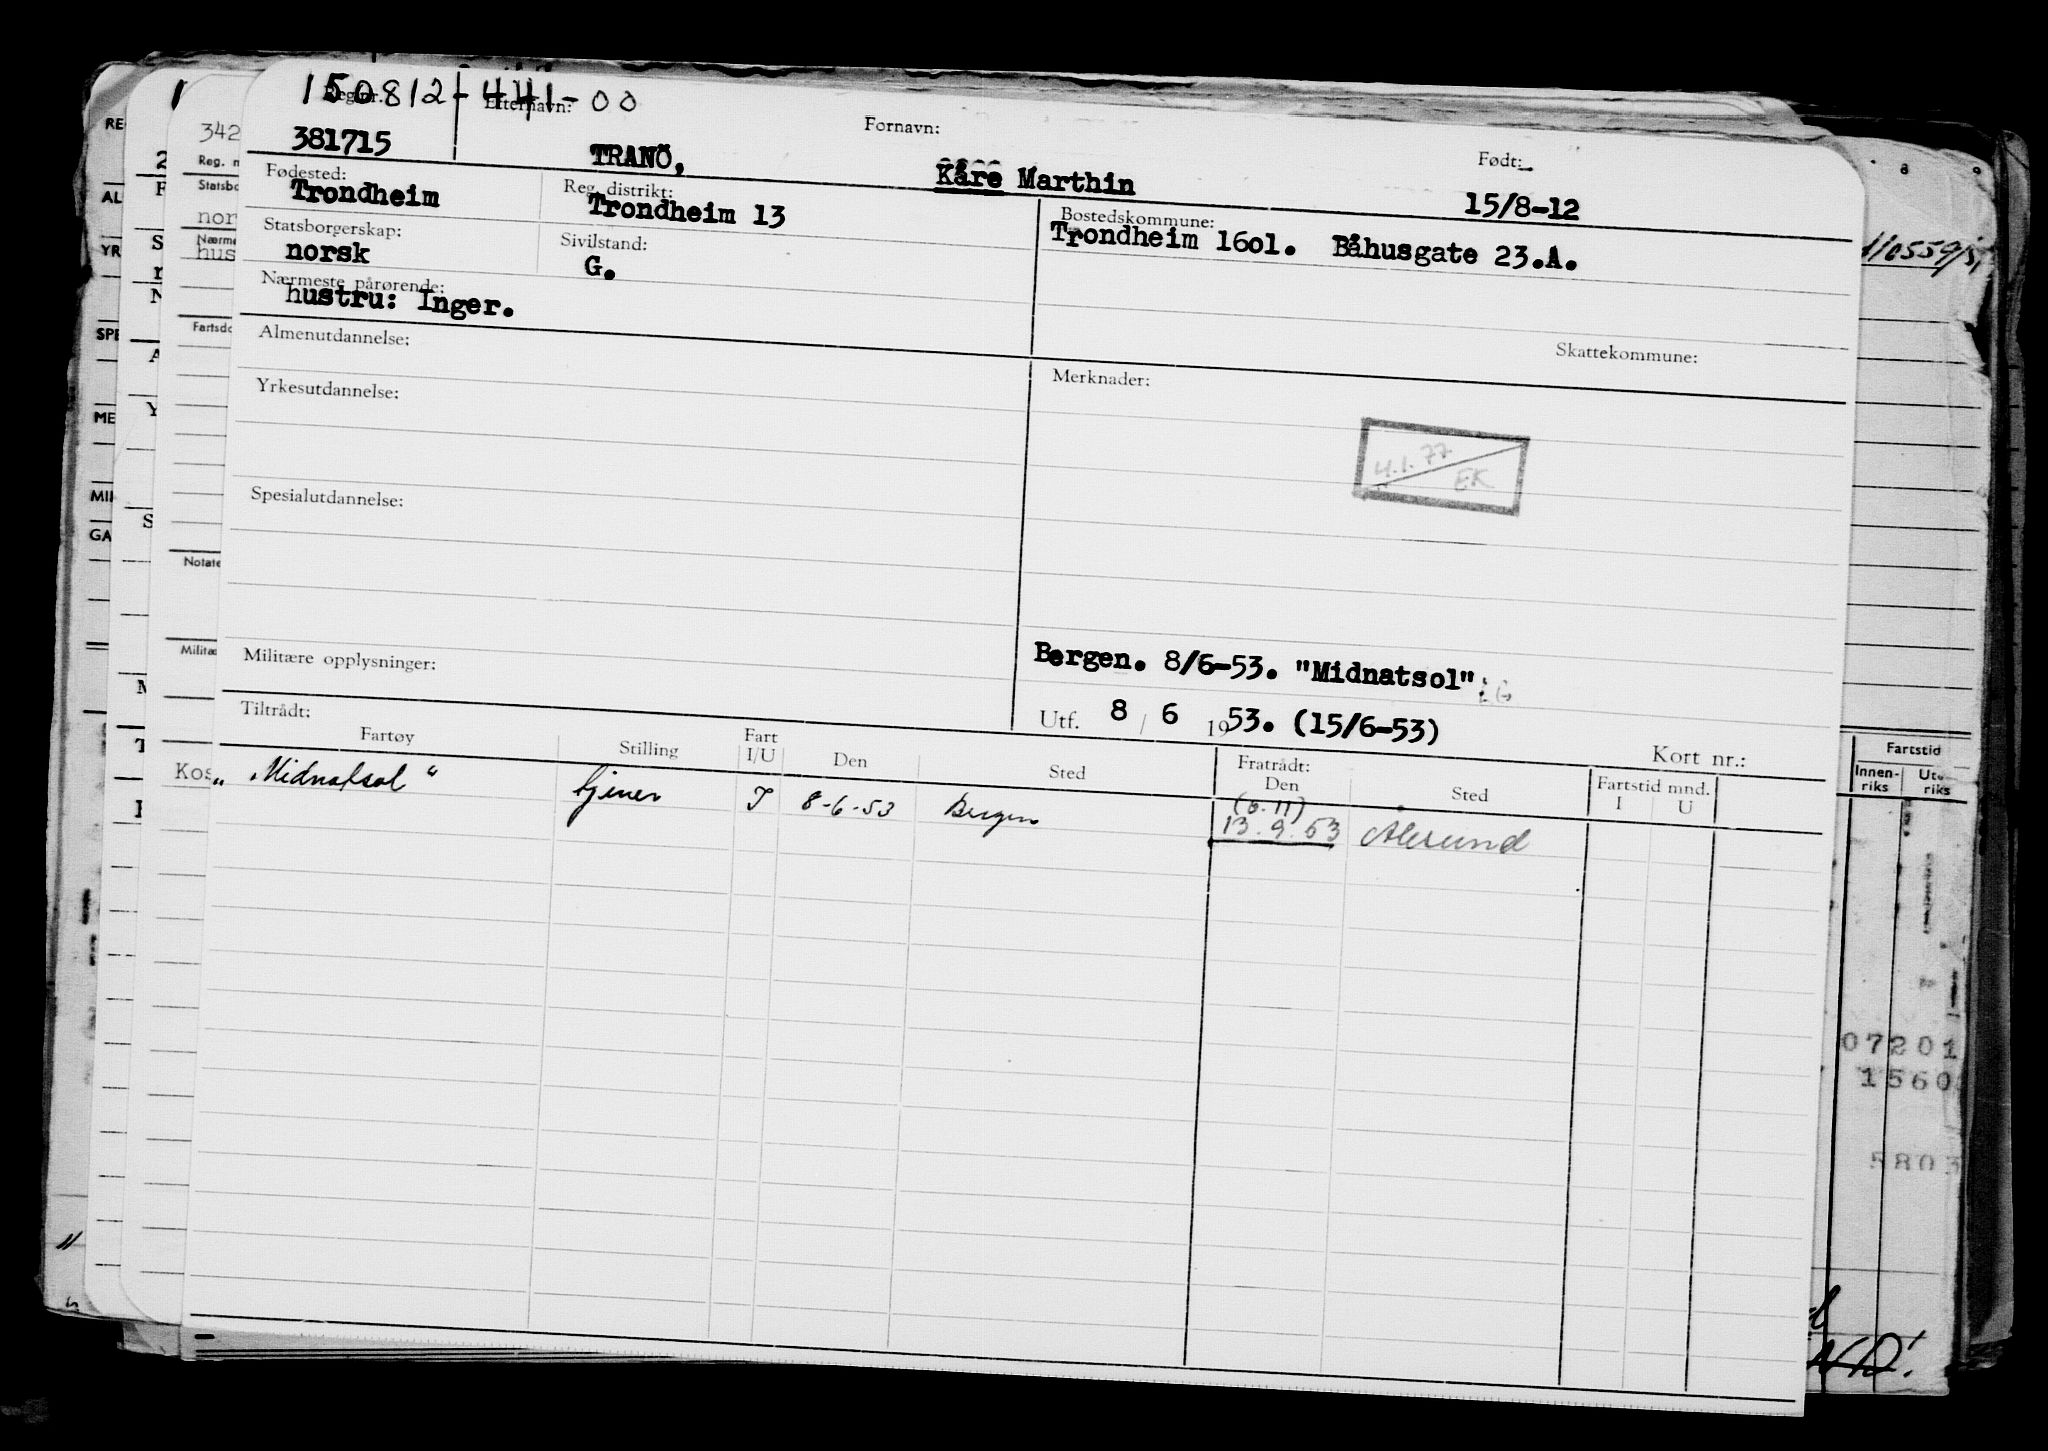 150812-441-00
Reg. nr. Efternavn: Fornavn: Født:
381715 TRANÖ, Kåre Marthin 15/8-12
Fødested: Reg. distrikt: Bostedskommune:
Trondheim Trondheim 13 Trondheim 16o1. Båhusgate 23.A.
Statsborgerskap: Sivilstand:
norsk G.
Nærmeste pårørende:
hustru: Inger.
Almenutdannelse: Skattekommune:
Yrkesutdannelse: Merknader:
4.1.77
EK
Spesialutdannelse:
Militære opplysninger: Bergen. 8/6-53. "Midnatsol"
Utf. 8 / 6 1953. (15/6-53)
Tiltrådt: Kort nr.:
Fartøy Stilling Fart I/U Den Sted Fratrådt: Den Sted Fartstid mnd. I U
(6.11)
„Midnatsol“ tjener I 8-6-53 Bergen 13.9.53 Ålesund
342
Reg. n
Statsbo
nor
Nærme
hus
Fartsdo
Notate
Militæ
Kos
RE
AL
YR
SPE
ME
MII
GA
110559/51
Fartstid
Innen-
riks
Ute-
riks
07201
1560
5803